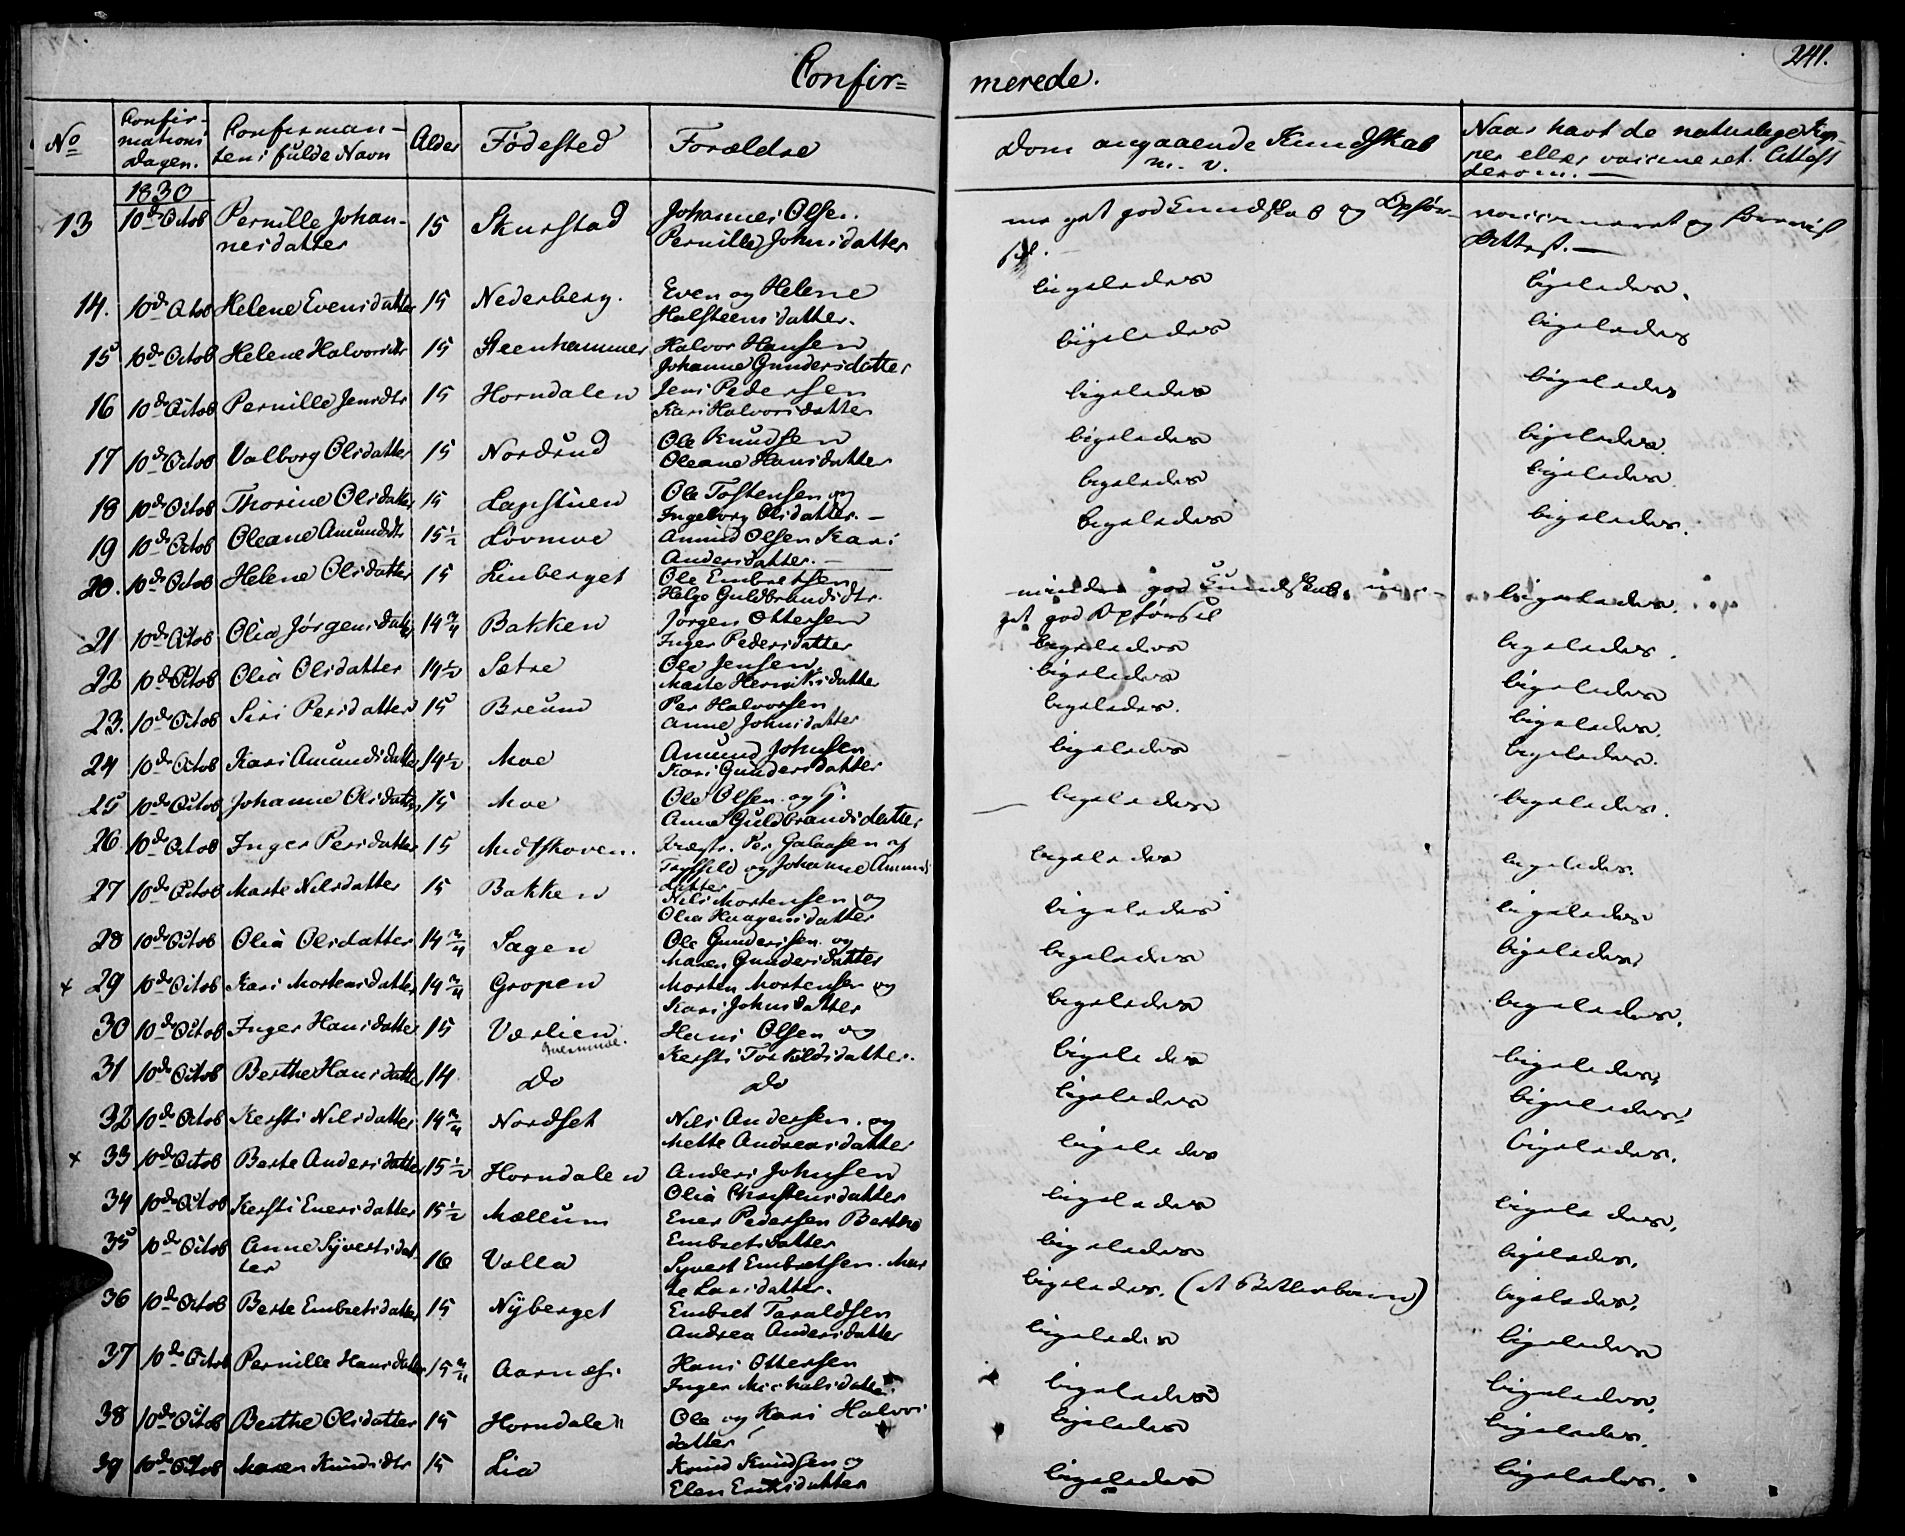 241.
Confir= merede.
No Confirmations Dagen. Confirmantens fulde Navn Alder Fødested Forældre Dom angaaende Kundskab m. v. Naar havt de naturlige Kopper eller vaccineret. Attest derom.
1830
13 10de Octob Pernille Johannesdatter 15 Skurstad Johannes Olsen. Pernille Johnsdatter meget god Kundskab og Opførsel. vaccineret og forevist Attest.
14. 10de Octob Helene Evensdatter 15 Nederberg. Even og Helene Halsteensdatter. ligeledes ligeledes.
15 10de Octob Helene Halvorsdtr 15 Steenhammer Halvor Hansen Johanne Gundersdatter ligeledes ligeledes
16 10de Octob Pernille Jensdtr 15 Horndalen Jens Pedersen Kari Halvorsdatter ligeledes ligeledes
17 10de Octob Valborg Olsdatter 15 Nordrud Ole Knudsen Oleane Hansdatter ligeledes ligeledes.
18 10de Octob Thorine Olsdatter 15 Lapstuen Ole Tostensen og Ingeborg Olsdatter. ligeledes ligeledes.
19 10de Octob Oleane Amundsdtr 15½ Løvmoe Amund Olsen Kari Andersdatter. ligeledes ligeledes.
20. 10de Octob Helene Olsdatter 15 Linberget Ole Embretsen Helge Guldbrandsdtr. mindre god Kundskab, meget god Opførsel ligeledes.
21 10de Octob Olia Jørgensdatter 14¾ Bakken Jørgen Ottersen Inger Pedersdatter ligeledes ligeledes.
22 10de Octob Olia Olsdatter 14½ Sætre Ole Jensen. Marte Henriksdatter ligeledes ligeledes
23. 10de Octob Siri Persdatter 15 Breum Per Halvorsen Anne Johnsdatter ligeledes. ligeledes.
24 10de Octob Kari Amundsdatter 14½ Moe Amund Johnsen Kari Gundersdatter ligeledes ligeledes.
25 10de Octob Johanne Olsdatter 15 Moe Ole Olsen og Anne Guldbrandsdatter ligeledes ligeledes.
26 10de Octob Inger Persdatter 15 Midtskoven. Per Galaasen af Tryssild og Johanne Amundsdatter ligeledes ligeledes.
27 10de Octob Marte Nilsdatter 15 Bakken Nils Mortensen og Olia Haagensdatter ligeledes ligeledes
28 10de Octob Olia Olsdatter 14¾ Sagen Ole Gundersen og Maren Gundersdatter ligeledes ligeledes
x 29 10de Octob Kari Mortensdatter 14¾ Gropen Morten Mortensen og Kari Johnsdatter ligeledes ligeledes.
30 10de Octob Inger Hansdatter 15 Værlien Hans Olsen og Kersti Torkildsdatter. ligeledes ligeledes,
31 10de Octob Berthe Hansdatter 14 Do Do ligeledes ligeledes
32 10de Octob Kersti Nilsdatter 14¾ Nordset Nils Andersen og Mette Andreasdatter ligeledes ligeledes.
x 33 10de Octob Berte Andersdatter 15½ Horndalen Anders Johnsen Olia Christensdatter ligeledes ligeledes,
34 10de Octob Kersti Enersdatter 15½ Mællum Ener Pedersen Berthe Embretsdatter ligeledes ligeledes.
35 10de Octob Anne Syvertsdatter 16 Valla Syvert Embretsen. Marte Larsdatter. ligeledes. (et Betlerbarn) ligeledes.
36 10de Octob Berte Embretsdatter 15 Nyberget Embret Taraldsen Andrea Andersdatter ligeledes ligeledes
37 10de Octob Pernille Hansdatter 15¾ Aarnæs. Hans Ottersen Inger Michelsdatter. ligeledes ligeledes.
38 10de Octob Berthe Olsdatter 15 Horndalen Ole og Kari Halvorsdatter ligeledes ligeledes.
39 10de Octob Maren Knudsdtr 15 Lia Knud Knudsen og Elen Eriksdatter ligeledes ligeledes.